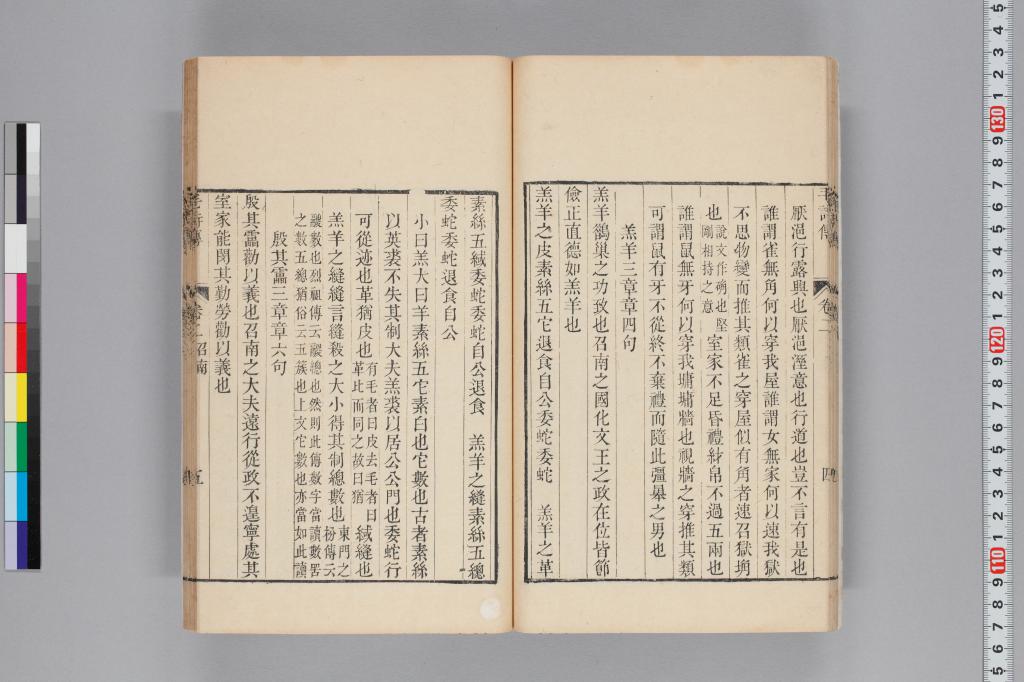 厭浥行露興也厭浥溼意也行道也豈不言有是也
誰謂雀無角何以穿我屋誰謂女無家何以速我獄
不思物變而推其類雀之穿屋似有角者速召獄埆
也說文作确也堅剛相持之意室家不足昏禮紂帛不過五兩也
誰謂鼠無牙何以穿我墉墉牆也視牆之穿推其類
可謂鼠有牙不從終不棄禮而隨此彊暴之男也
羔羊三章章四句
羔羊鵲巢之功致也召南之國化文王之政在位皆節
儉正直德如羔羊也
羔羊之皮素絲五它退食自公委蛇委蛇 羔羊之革
素絲五緎委蛇委蛇自公退食 羔羊之縫素絲五總
委蛇委蛇退食自公
小曰羔大曰羊素絲五它素白也它數也古者素絲
以英裘不失其制大夫羔裘以居公公門也委蛇行
可從迹也革猶皮也有毛者曰皮去毛者曰革此而同之故曰猶緎縫也
羔羊之縫縫言縫殺之大小得其制總數也東門之枌傳云
鬷數也烈祖傳云鬷總也然則此傳數字當讀數罟
之數五總猶俗云五族也上文它數也亦當如此讀
殷其靁三章章六句
殷其靁勸以義也召南之大夫遠行從政不遑寧處其
室家能閔其勤勞勸以義也
毛詩傳
卷二
四
卷二 召南
五
5
4
3
2
1
130
9
8
7
6
5
4
3
2
1
120
9
8
7
6
5
4
3
2
1
110
9
8
7
6
5